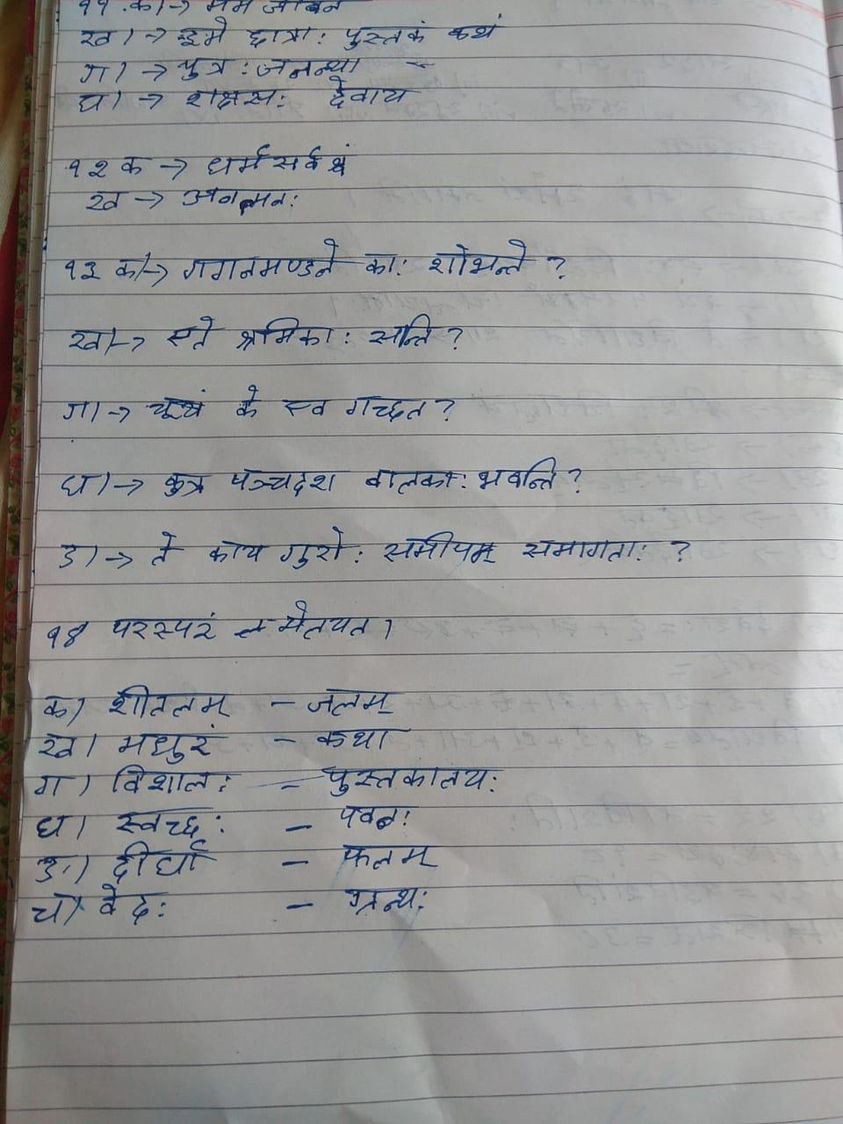 ११ क) → मम जीवन
ख) → इमे छात्राः पुस्तकं कथं
ग) → पुत्रः जनन्या -
घ) → राक्षसः देवाय
१२ क → धर्मसर्वश्वं
ख →
१३ क) → गगनमण्डले काः शोभन्ते ?
ख) → एते श्रमिकाः सन्ति ?
ग) → यूयं के स्व गच्छत ?
घ) → कुत्र पञ्चदश बालकाः भवन्ति ?
ङ) → ते काय गुरोः समीपम् समागताः ?
१४ परस्परं मेलयत ।
क) शीतलम् - जलम्
ख) मधुरं - कथा
ग) विशालः - पुस्तकालयः
घ) स्वच्छः - पवनः
ङ) दीर्घा - फलम्
च) वेदः - ग्रन्थः